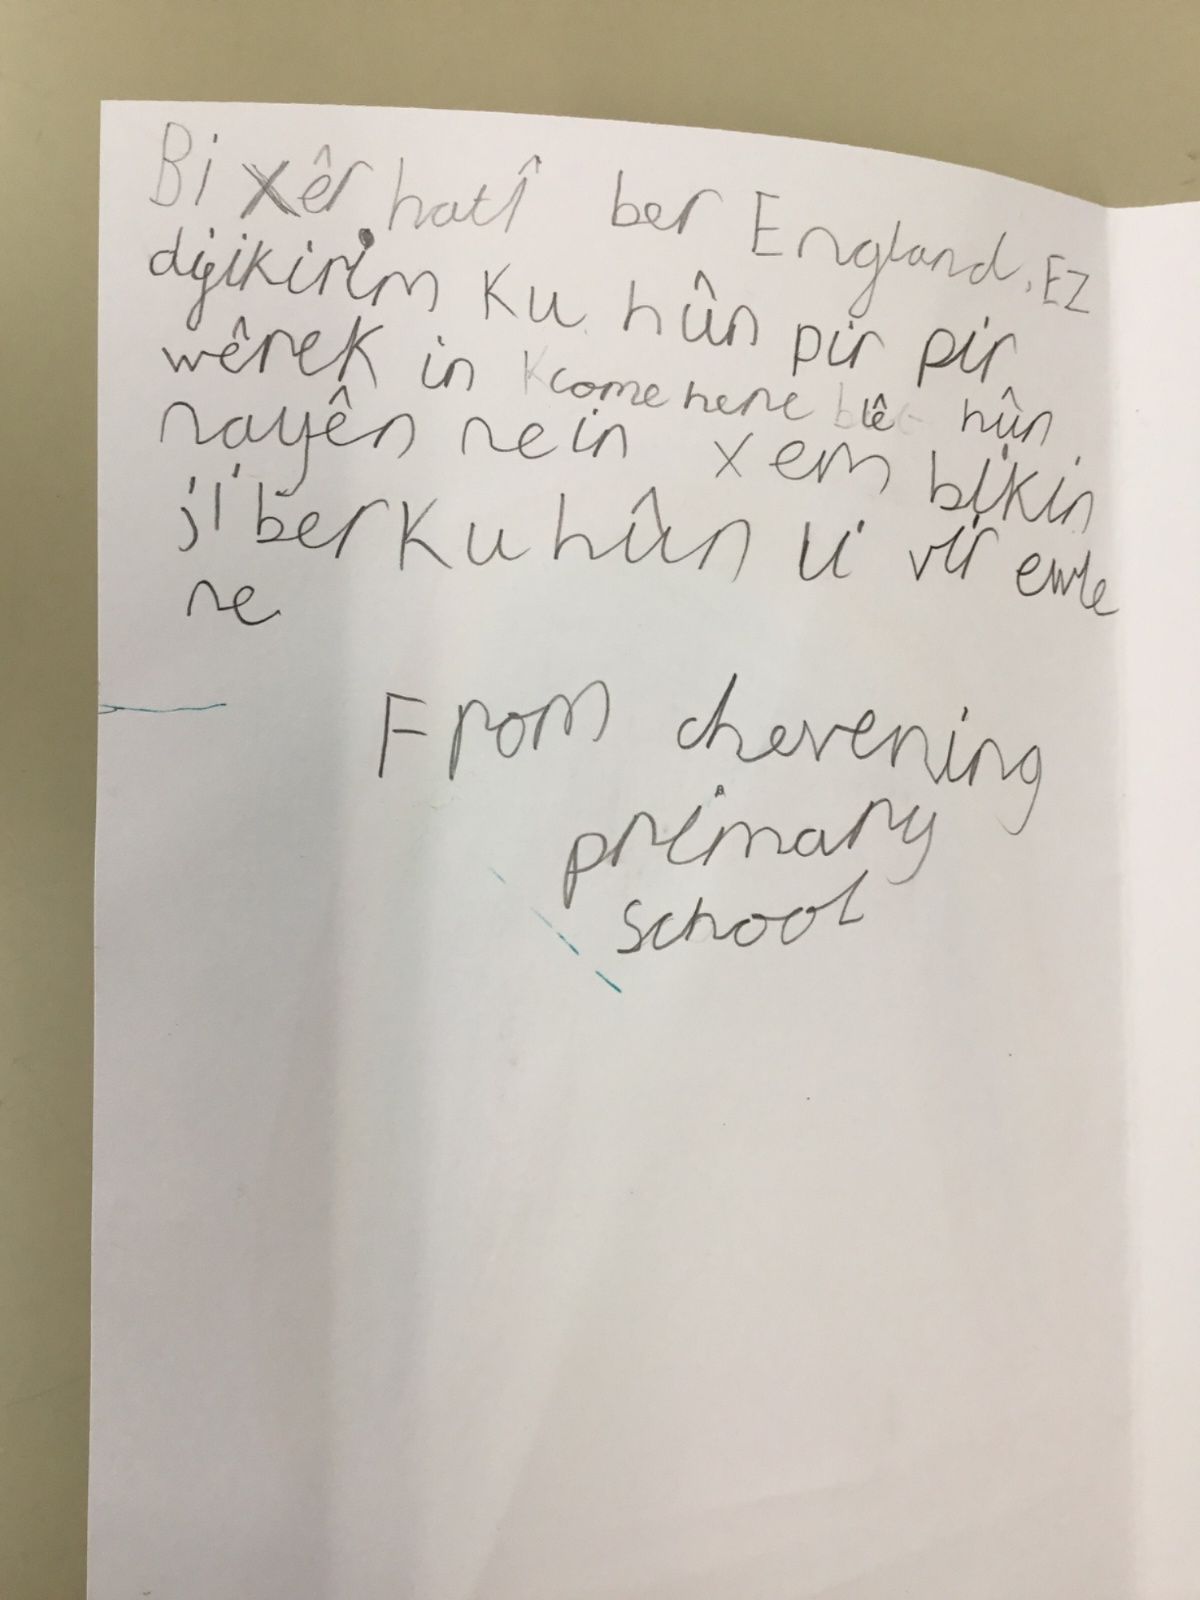 Bi xêr hatî ber England, Ez
dijikirim ku hûn pir pir
wêrek in come here lê hûn
nayên nein xem bikin
ji ber ku hûn li vir ewle
ne
From chevening
primary
school